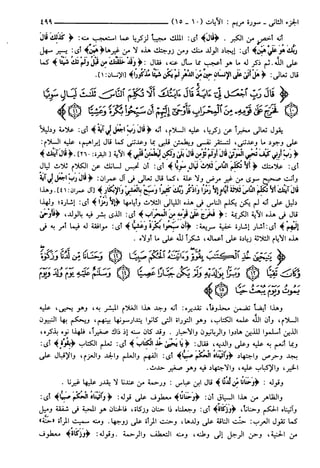 الجزء الثاني - سورة مريم: الآيات (١٠ - ١٥) ٤٩٩
أنه أخص من الكبر. ﴿قَالَ﴾ أي: الملك مجيباً لزكريا عما استعجب منه: ﴿كَذَٰلِكَ قَالَ
رَبُّكَ هُوَ عَلَيَّ هَيِّنٌ﴾ أي: إيجاد الولد منك ومن زوجتك هذه لا من غيرها ﴿هَيِّنٌ﴾ أي: يسير سهل
على الله. ثم ذكر له ما هو أعجب مما سأل عنه، فقال: ﴿وَقَدْ خَلَقْتُكَ مِن قَبْلُ وَلَمْ تَكُ شَيْئًا﴾ كما
قال تعالى: ﴿هَلْ أَتَىٰ عَلَى الْإِنسَانِ حِينٌ مِّنَ الدَّهْرِ لَمْ يَكُن شَيْئًا مَّذْكُورًا﴾ (الإنسان:١).
قَالَ رَبِّ اجْعَل لِّي آيَةً قَالَ آيَتُكَ أَلَّا تُكَلِّمَ النَّاسَ ثَلَاثَ لَيَالٍ سَوِيًّا
فَخَرَجَ عَلَىٰ قَوْمِهِ مِنَ الْمِحْرَابِ فَأَوْحَىٰ إِلَيْهِمْ أَن سَبِّحُوا بُكْرَةً وَعَشِيًّا
يقول تعالى مخبراً عن زكريا، عليه السلام، أنه ﴿قَالَ رَبِّ اجْعَل لِّي آيَةً﴾ أي: علامة ودليلاً
على وجود ما وعدتني، لتستقر نفسي ويطمئن قلبي بما وعدتني كما قال إبراهيم، عليه السلام:
﴿رَبِّ أَرِنِي كَيْفَ تُحْيِي الْمَوْتَىٰ قَالَ أَوَلَمْ تُؤْمِن قَالَ بَلَىٰ وَلَٰكِن لِّيَطْمَئِنَّ قَلْبِي﴾ الآية (البقرة: ٢٦٠). ﴿قَالَ آيَتُكَ﴾
أي: علامتك ﴿أَلَّا تُكَلِّمَ النَّاسَ ثَلَاثَ لَيَالٍ سَوِيًّا﴾ أي: أن تحبس لسانك عن الكلام ثلاث ليال
وأنت صحيح سوي من غير مرض ولا علة. كما قال تعالى في آل عمران: ﴿قَالَ رَبِّ اجْعَل لِّي آيَةً
قَالَ آيَتُكَ أَلَّا تُكَلِّمَ النَّاسَ ثَلَاثَةَ أَيَّامٍ إِلَّا رَمْزًا وَاذْكُر رَّبَّكَ كَثِيرًا وَسَبِّحْ بِالْعَشِيِّ وَالْإِبْكَارِ﴾ (آل عمران: ٤١). وهذا
دليل على أنه لم يكن يكلم الناس في هذه الليالي الثلاث وأيامها ﴿إِلَّا رَمْزًا﴾ أي: إشارة؛ ولهذا
قال في هذه الآية الكريمة: ﴿فَخَرَجَ عَلَىٰ قَوْمِهِ مِنَ الْمِحْرَابِ﴾ أي: الذي بشر فيه بالولد، ﴿فَأَوْحَىٰ
إِلَيْهِمْ﴾ أي: أشار إشارة خفية سريعة: ﴿أَن سَبِّحُوا بُكْرَةً وَعَشِيًّا﴾ أي: موافقة له فيما أمر به في
هذه الأيام الثلاثة زيادة على أعماله، شكراً لله على ما أولاه.
يَا يَحْيَىٰ خُذِ الْكِتَابَ بِقُوَّةٍ وَآتَيْنَاهُ الْحُكْمَ صَبِيًّا وَحَنَانًا مِّن لَّدُنَّا وَزَكَاةً وَكَانَ
تَقِيًّا وَبَرًّا بِوَالِدَيْهِ وَلَمْ يَكُن جَبَّارًا عَصِيًّا وَسَلَامٌ عَلَيْهِ يَوْمَ وُلِدَ وَيَوْمَ
يَمُوتُ وَيَوْمَ يُبْعَثُ حَيًّا
وهذا أيضاً تضمن محذوفاً، تقديره: أنه وجد هذا الغلام المبشر به، وهو يحيى، عليه
السلام، وأن الله علمه الكتاب، وهو التوراة التي كانوا يتدارسونها بينهم، ويحكم بها النبيون
الذين أسلموا للذين هادوا والربانيون والأحبار. وقد كان سنه إذ ذاك صغيراً، فلهذا نوه بذكره،
وبما أنعم به عليه وعلى والديه، فقال: ﴿يَا يَحْيَىٰ خُذِ الْكِتَابَ﴾ أي: تعلم الكتاب ﴿بِقُوَّةٍ﴾ أي:
بجد وحرص واجتهاد ﴿وَآتَيْنَاهُ الْحُكْمَ صَبِيًّا﴾ أي: الفهم والعلم والجد والعزم، والإقبال على
الخير، والإكباب عليه، والاجتهاد فيه وهو صغير حدث.
وقوله: ﴿وَحَنَانًا مِّن لَّدُنَّا﴾ قال ابن عباس: ورحمة من عندنا لا يقدر عليها غيرنا.
والظاهر من هذا السياق أن: ﴿وَحَنَانًا﴾ معطوف على قوله: ﴿وَآتَيْنَاهُ الْحُكْمَ صَبِيًّا﴾ أي:
وآتيناه الحكم وحناناً، ﴿وَزَكَاةً﴾ أي: وجعلناه ذا حنان وزكاة، فالحنان هو المحبة في شفقة وميل
كما تقول العرب: حنّت الناقة على ولدها، وحنت المرأة على زوجها. ومنه سميت المرأة «حنّة»
من الحنية، وحن الرجل إلى وطنه، ومنه التعطف والرحمة. وقوله: ﴿وَزَكَاةً﴾ معطوف